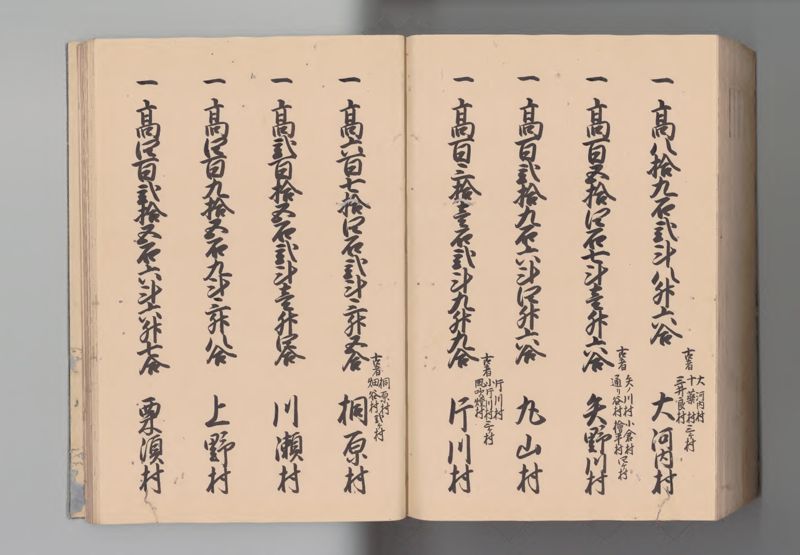 一 高八拾九石弐斗八升六合 大河内村
古者 大河内村
十藥村
三井良村 三ケ村
一 高百五拾四石七斗壱升六合 矢野川村
古者 矢ノ川村 小倉村
通り谷村 檜平村 四ケ村
一 高百弐拾九石六斗四升六合 丸山村
一 高百三拾壱石弐斗九升九合 片川村
古者 片川村
小片川村
風吹峠村 三ケ村
一 高六百七拾四石弐斗三升五合 桐原村
古者 桐原村
畑谷村 弐ケ村
一 高弐百拾五石弐斗壱升四合 川瀬村
一 高四百九拾五石九斗三升八合 上野村
一 高四百弐拾五石六斗六升七合 栗須村